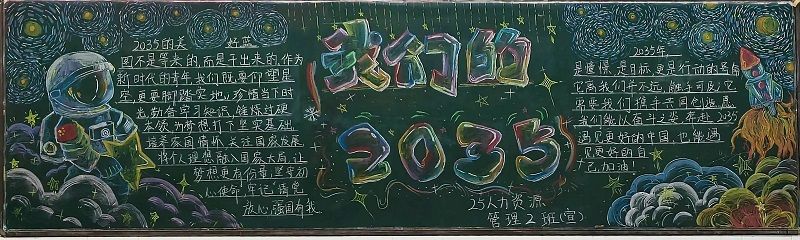 2035的美好蓝
图不是等来的,而是干出来的,作为
新时代的青年,我们既要仰望星
空,更要脚踏实地。珍惜当下时
光,勤奋学习知识,锤炼过硬
本领,为梦想打下坚实基础。
涵养家国情怀,关注国家发展
将个人理想融入国家大局,让
梦想更有份量,坚守初
心使命,牢记请党
放心,强国有我。
我们的
2035
25人力资源
管理2班(宣)
2035年
是憧憬,是目标,更是行动的号角
它离我们并不远,触手可及,它
需要我们携手共同创造展
我们能以奋斗之姿,奔赴2035
遇见更好的中国,也能遇
见更好的自
己,加油!